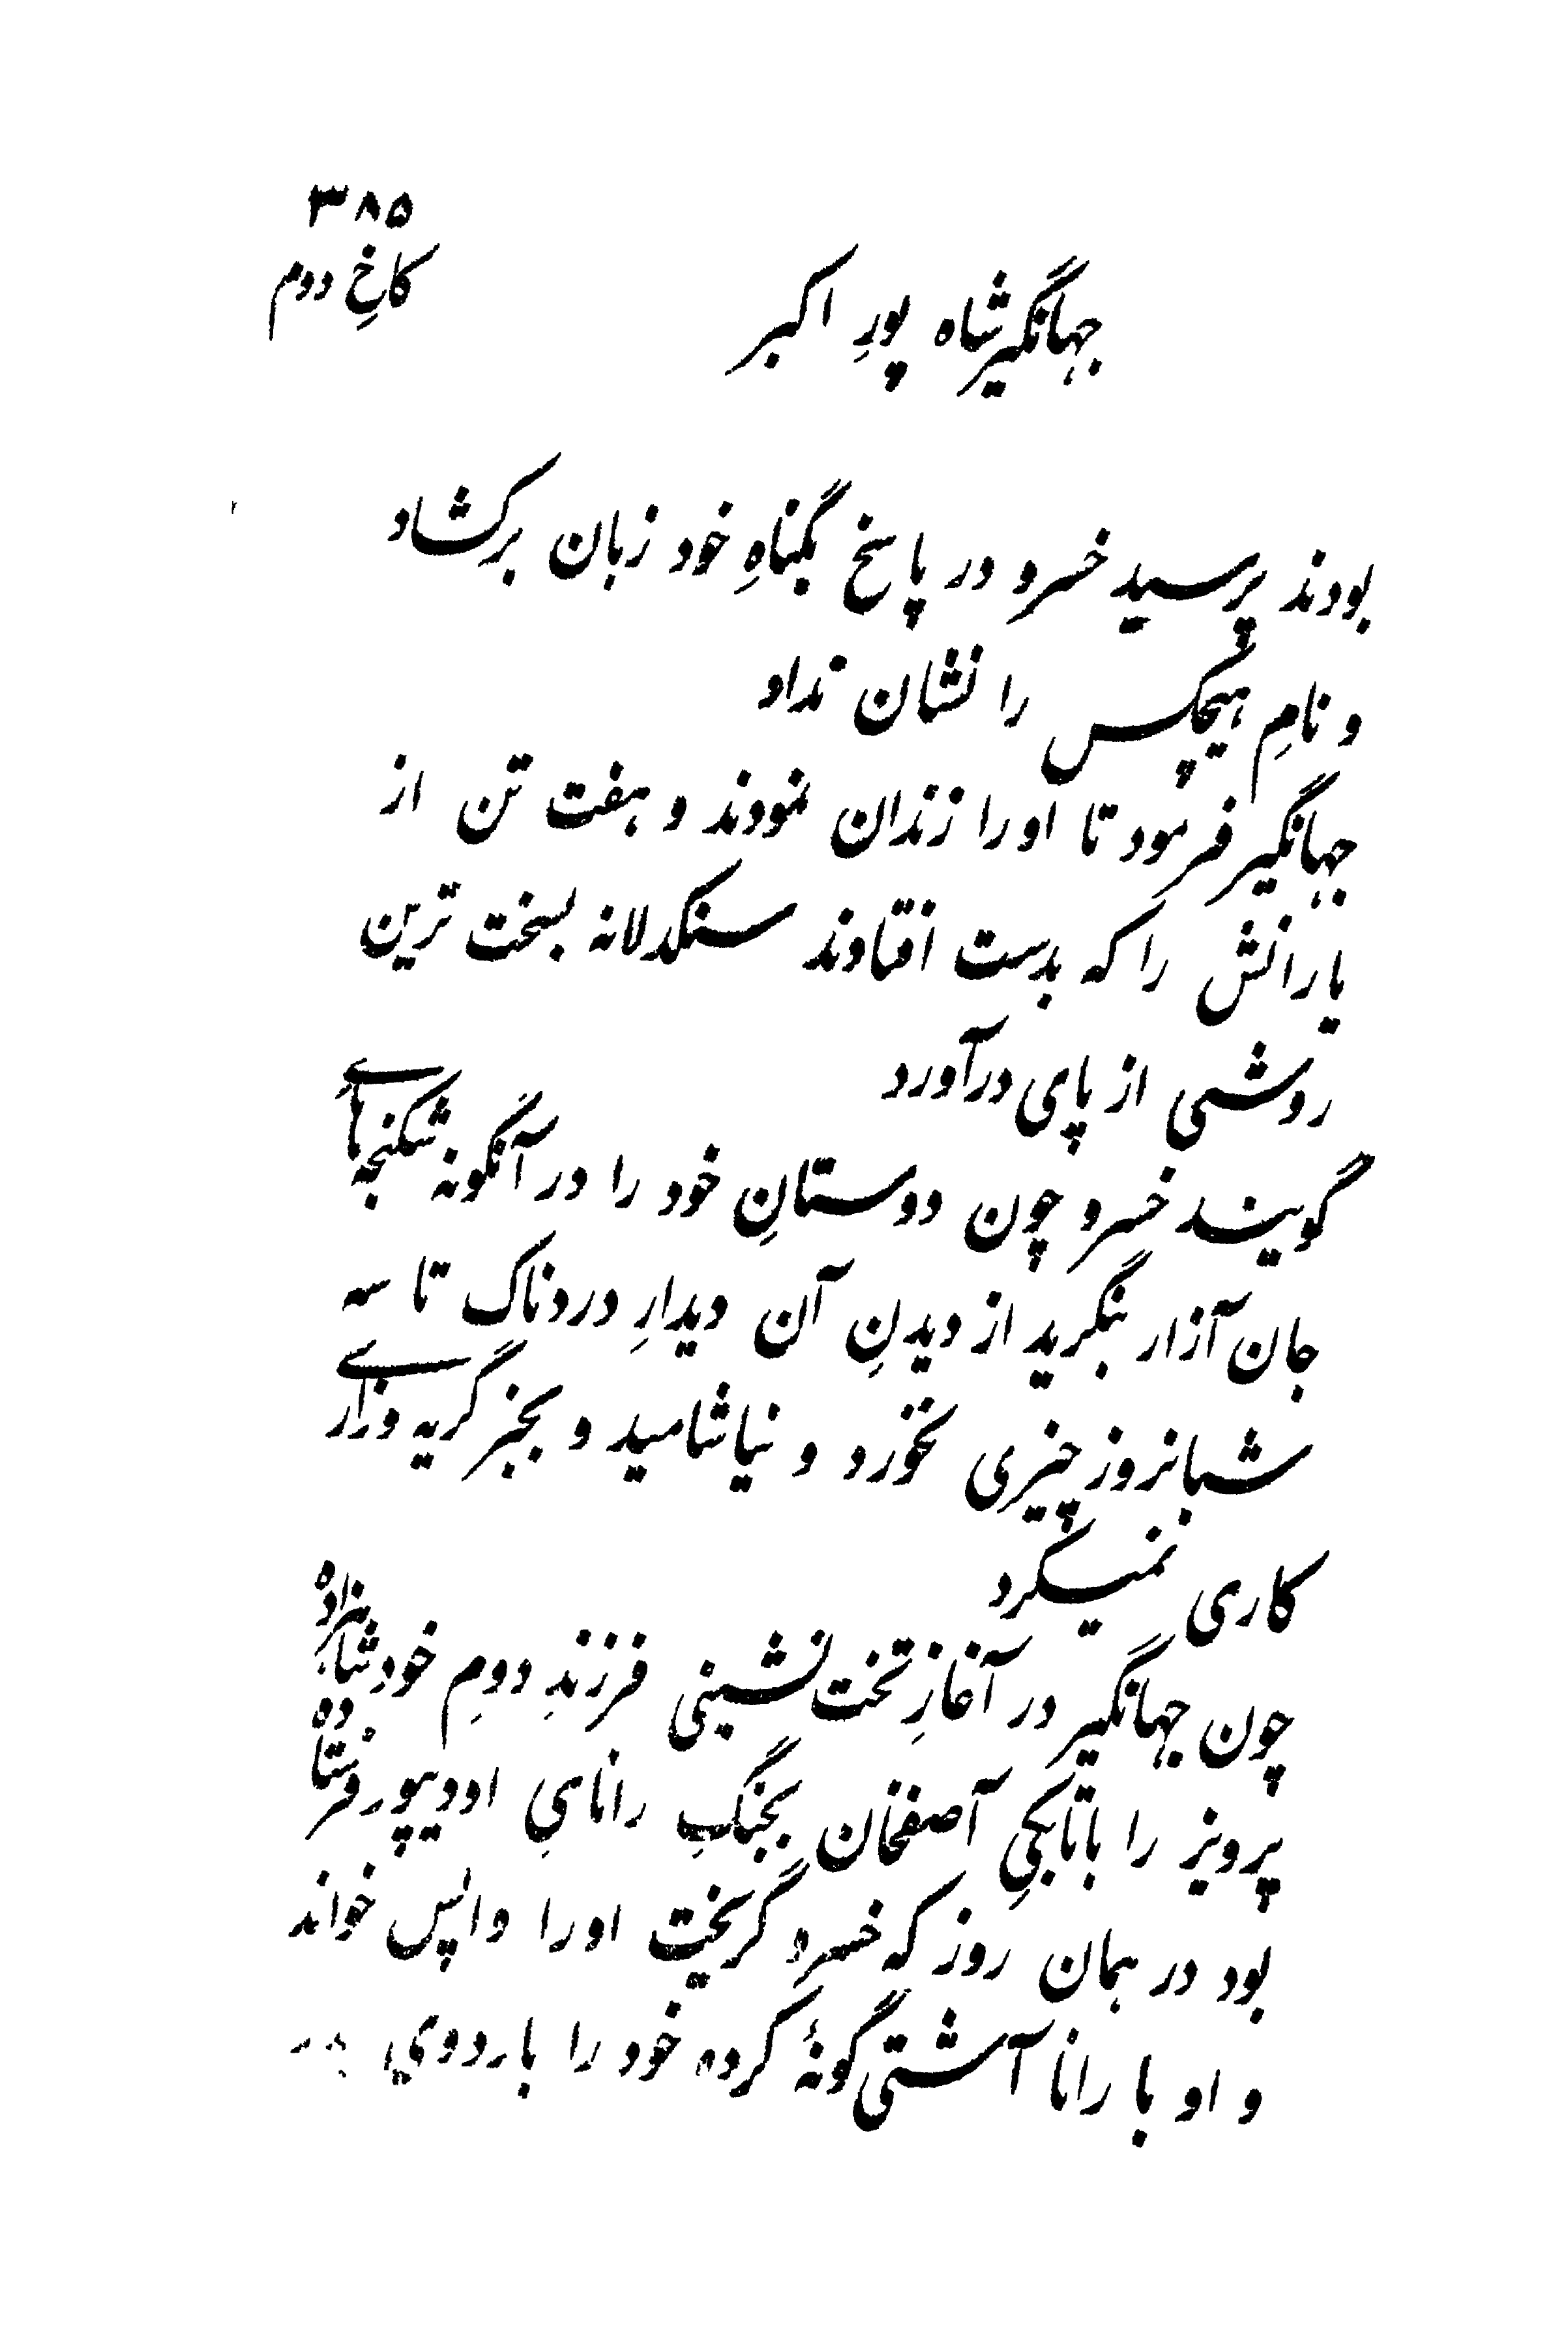 ۳۸۵
کاخِ دوم
جهانگیرشاه پورِ اکبر
بودند پرسید خسرو در پاسخ بگناهِ خود زبان برکشاد
و نامِ هیچکس را نشان نداد
جهانگیر فرمود تا او را زندان نمودند و هفت تن از
یارانش را که بدست افتادند سنگدلانه بسخت ترین
روشی از پای درآورد
گویند خسرو چون دوستانِ خود را در آنگونه شکنجهای
جان آزار بنگرید از دیدنِ آن دیدارِ دردناک تا سه
شبانروز چیزی نخورد و نیاشامید و بجز گریه وزاری
کاری نمیکرد
چون جهانگیر در آغازِ تخت نشینی فرزندِ دومِ خود شاهزاده
پرویز را باتابکیِ آصفخان بجنگِ رانایِ اودیپور فرستاده
بود در همان روز که خسرو گریخت او را واپس خواند
و او با رانا آشتی گونهٔ کرده خود را باردوی